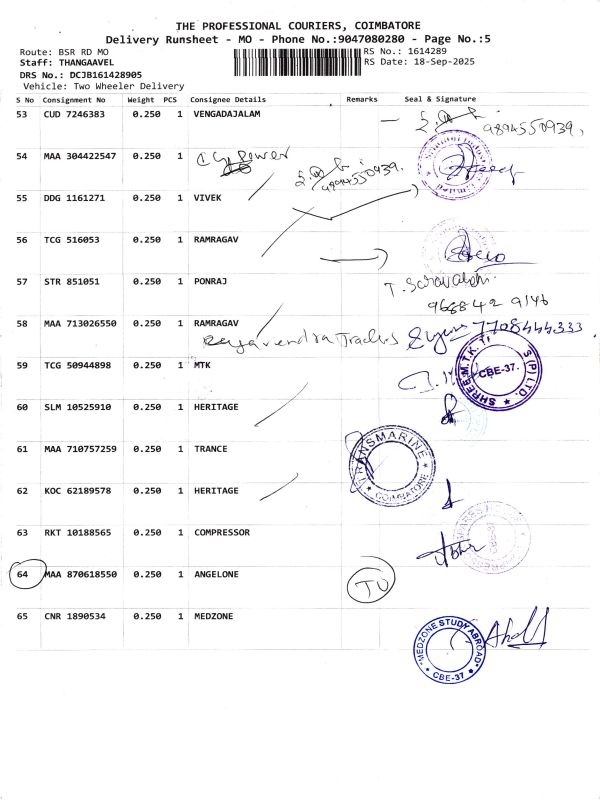 THE PROFESSIONAL COURIERS, COIMBATORE
Delivery Runsheet - MO - Phone No.:9047080280 - Page No.:5
Route: BSR RD MO
RS No.: 1614289
Staff: THANGAAVEL
RS Date: 18-Sep-2025
DRS No.: DCJB161428905
Vehicle: Two Wheeler Delivery
S No Consignment No Weight PCS Consignee Details Remarks Seal & Signature
53 CUD 7246383 0.250 1 VENGADAJALAM
9894550939,
54 MAA 304422547 0.250 1
Power
9894550939.
55 DDG 1161271 0.250 1 VIVEK
56 TCG 516053 0.250 1 RAMRAGAV
57 STR 851051 0.250 1 PONRAJ
968842 9146
58 MAA 713026550 0.250 1 RAMRAGAV
7708444333
59 TCG 50944898 0.250 1 MTK
SHREE M.T.K. TI S (P) LTD.
CBE-37.
60 SLM 10525910 0.250 1 HERITAGE
61 MAA 710757259 0.250 1 TRANCE
TRANSMARINE
COIMBATORE
62 KOC 62189578 0.250 1 HERITAGE
63 RKT 10188565 0.250 1 COMPRESSOR
64 MAA 870618550 0.250 1 ANGELONE
65 CNR 1890534 0.250 1 MEDZONE
"MEDZONE STUDY ABROAD"
CBE-37